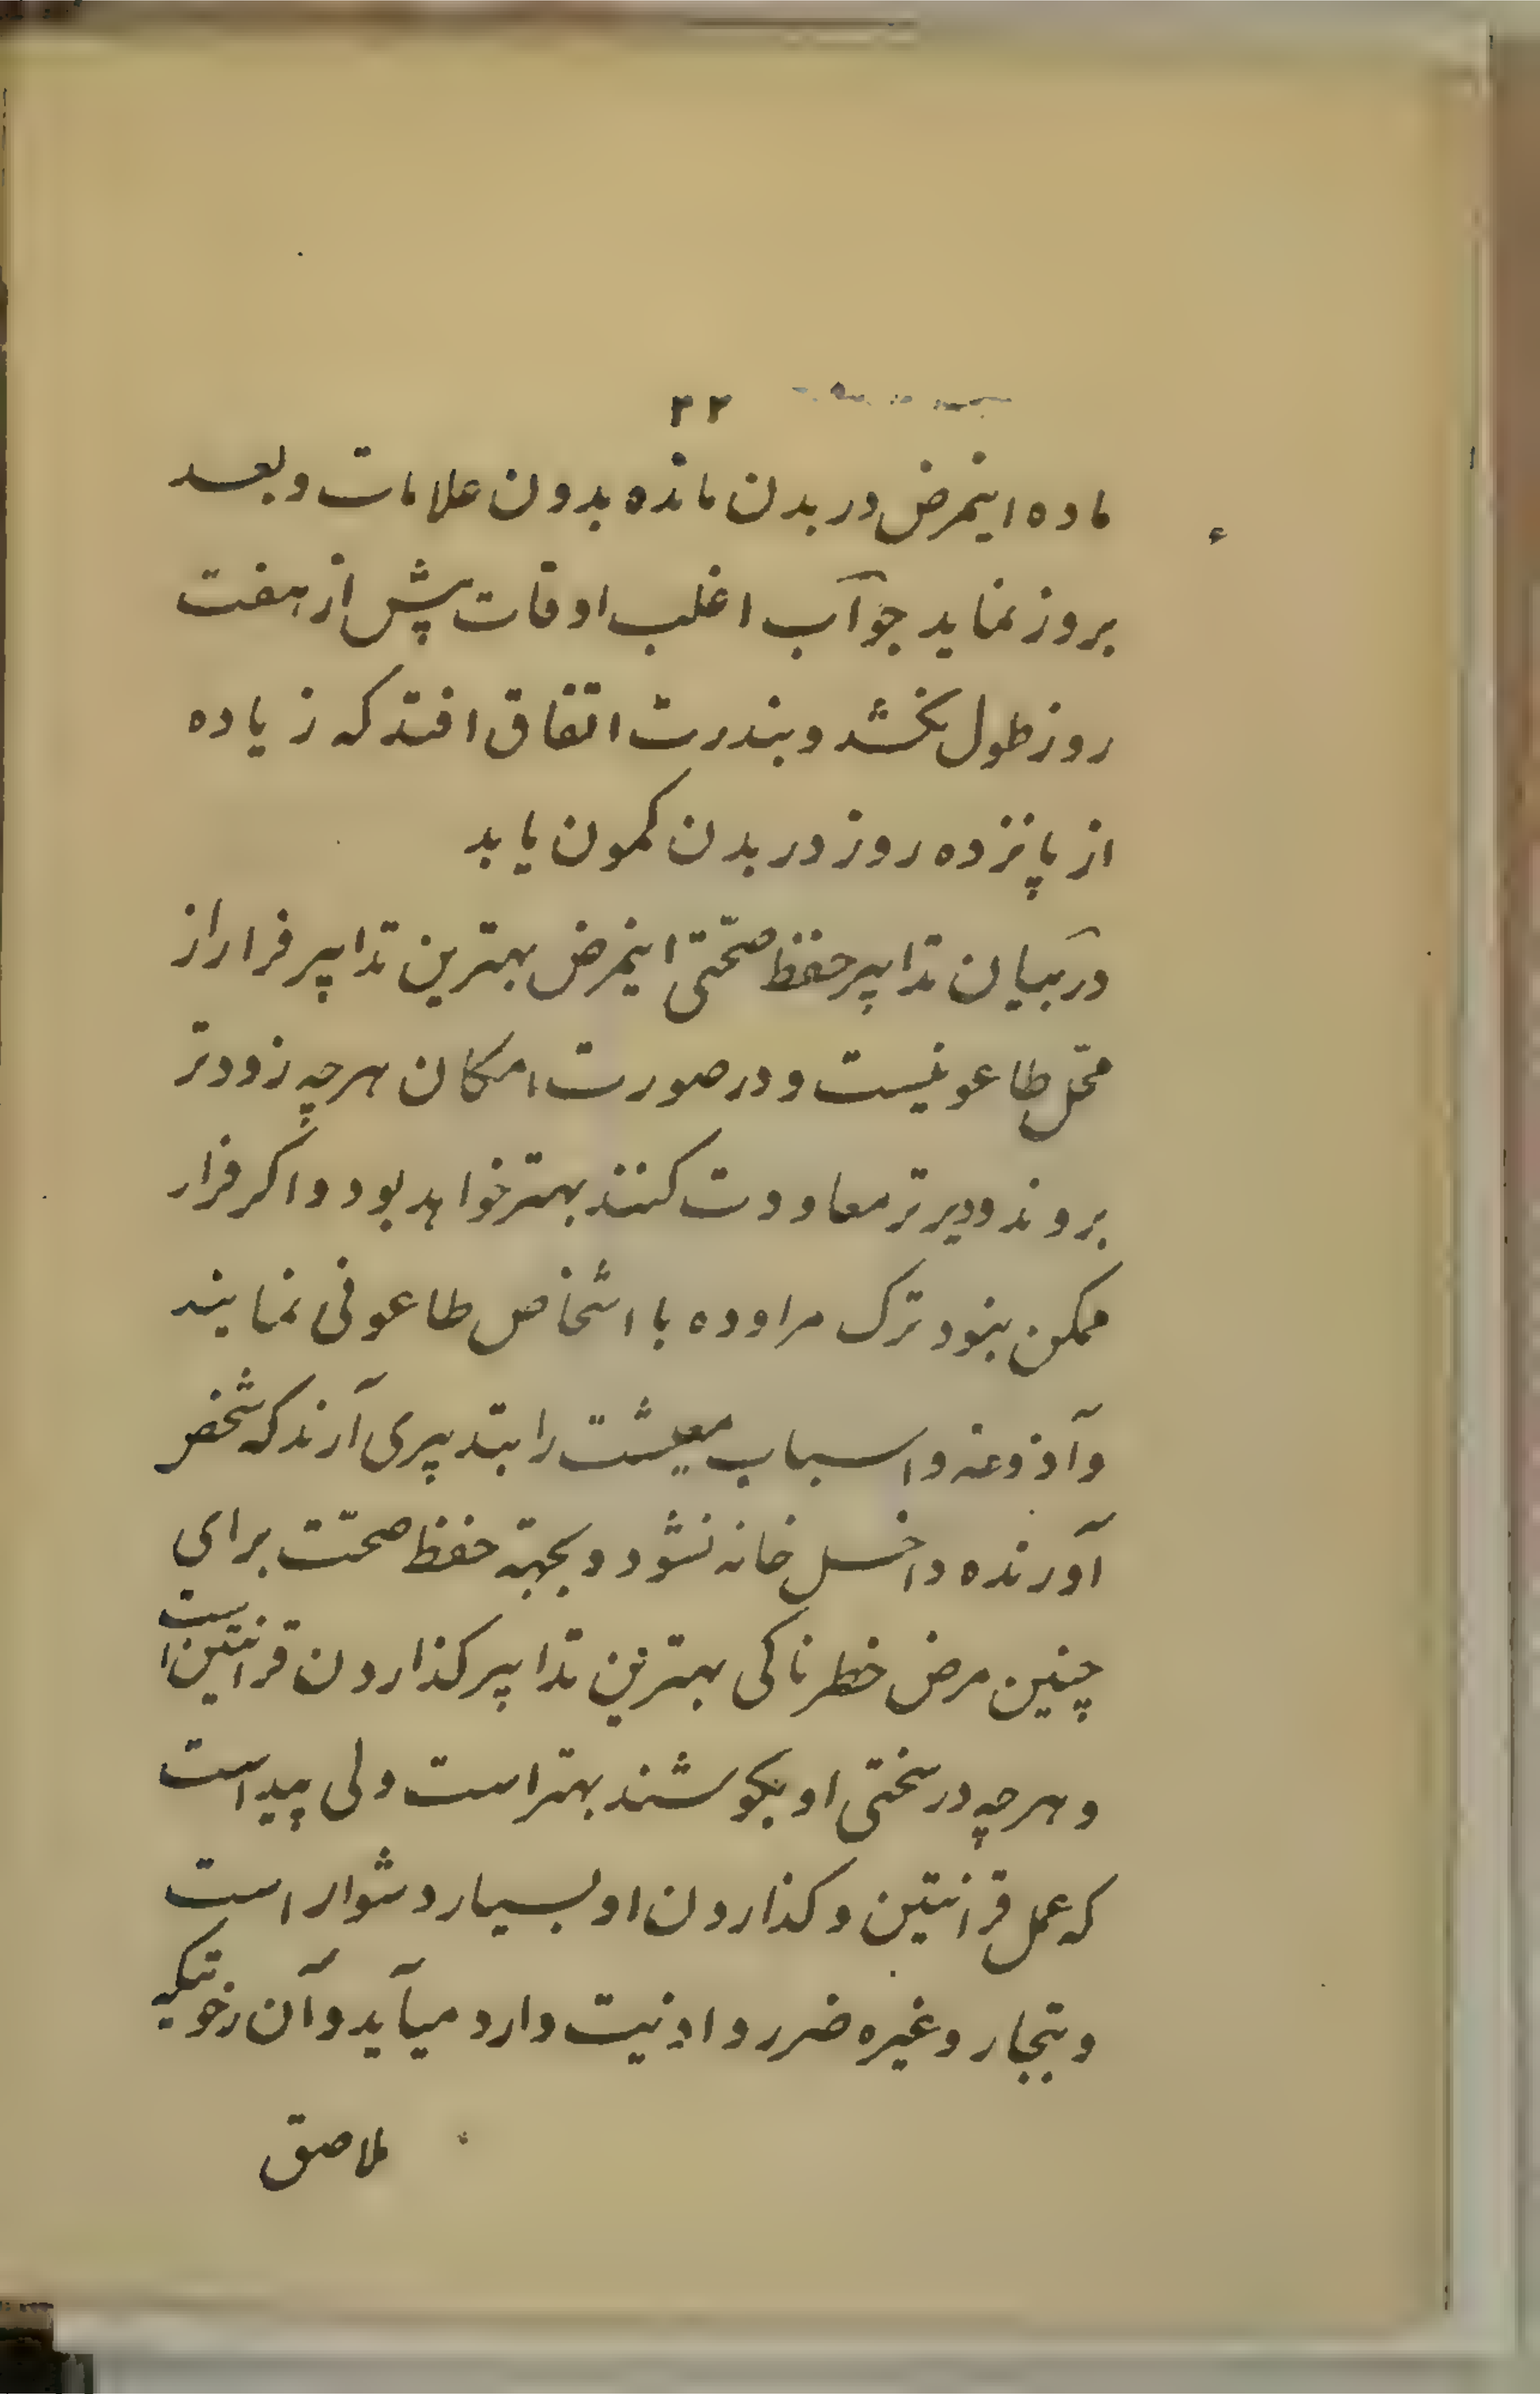 ۲۲
ماده اینمرض در بدن مانده بدون علامات و بعد
بروز نماید جوآب اغلب اوقات پیش از هفت
روز طول نکشد و بندرت اتفاق افتد که زیاده
از پانزده روز در بدن کمون یابد
در بیان تدابیر حفظ صحّتی اینمرض بهترین تدابیر فرار از
محّل طاعونیست و در صورت امکان هر چه زودتر
بروند و دیرتر معاودت کنند بهتر خواهد بود و اکر فرار
ممکن نبود ترک مراوده با اشخاص طاعونی نمایند
و آذوغه و اسباب معیشت را بتدبیری آرند که شخص
آورنده داخل خانه نشود و بجهة حفظ صحّت برای
چنین مرض خطرناکی بهترین تدابیر کذاردن قرانتین است
و هر چه در سختی او بکوشند بهتر است ولی پیداست
که عمل قرانتین و کذاردن او بسیار دشوار است
و بتجار و غیره ضرر و اذیت وارد میآید و آن رخوتیکه
ملاصق